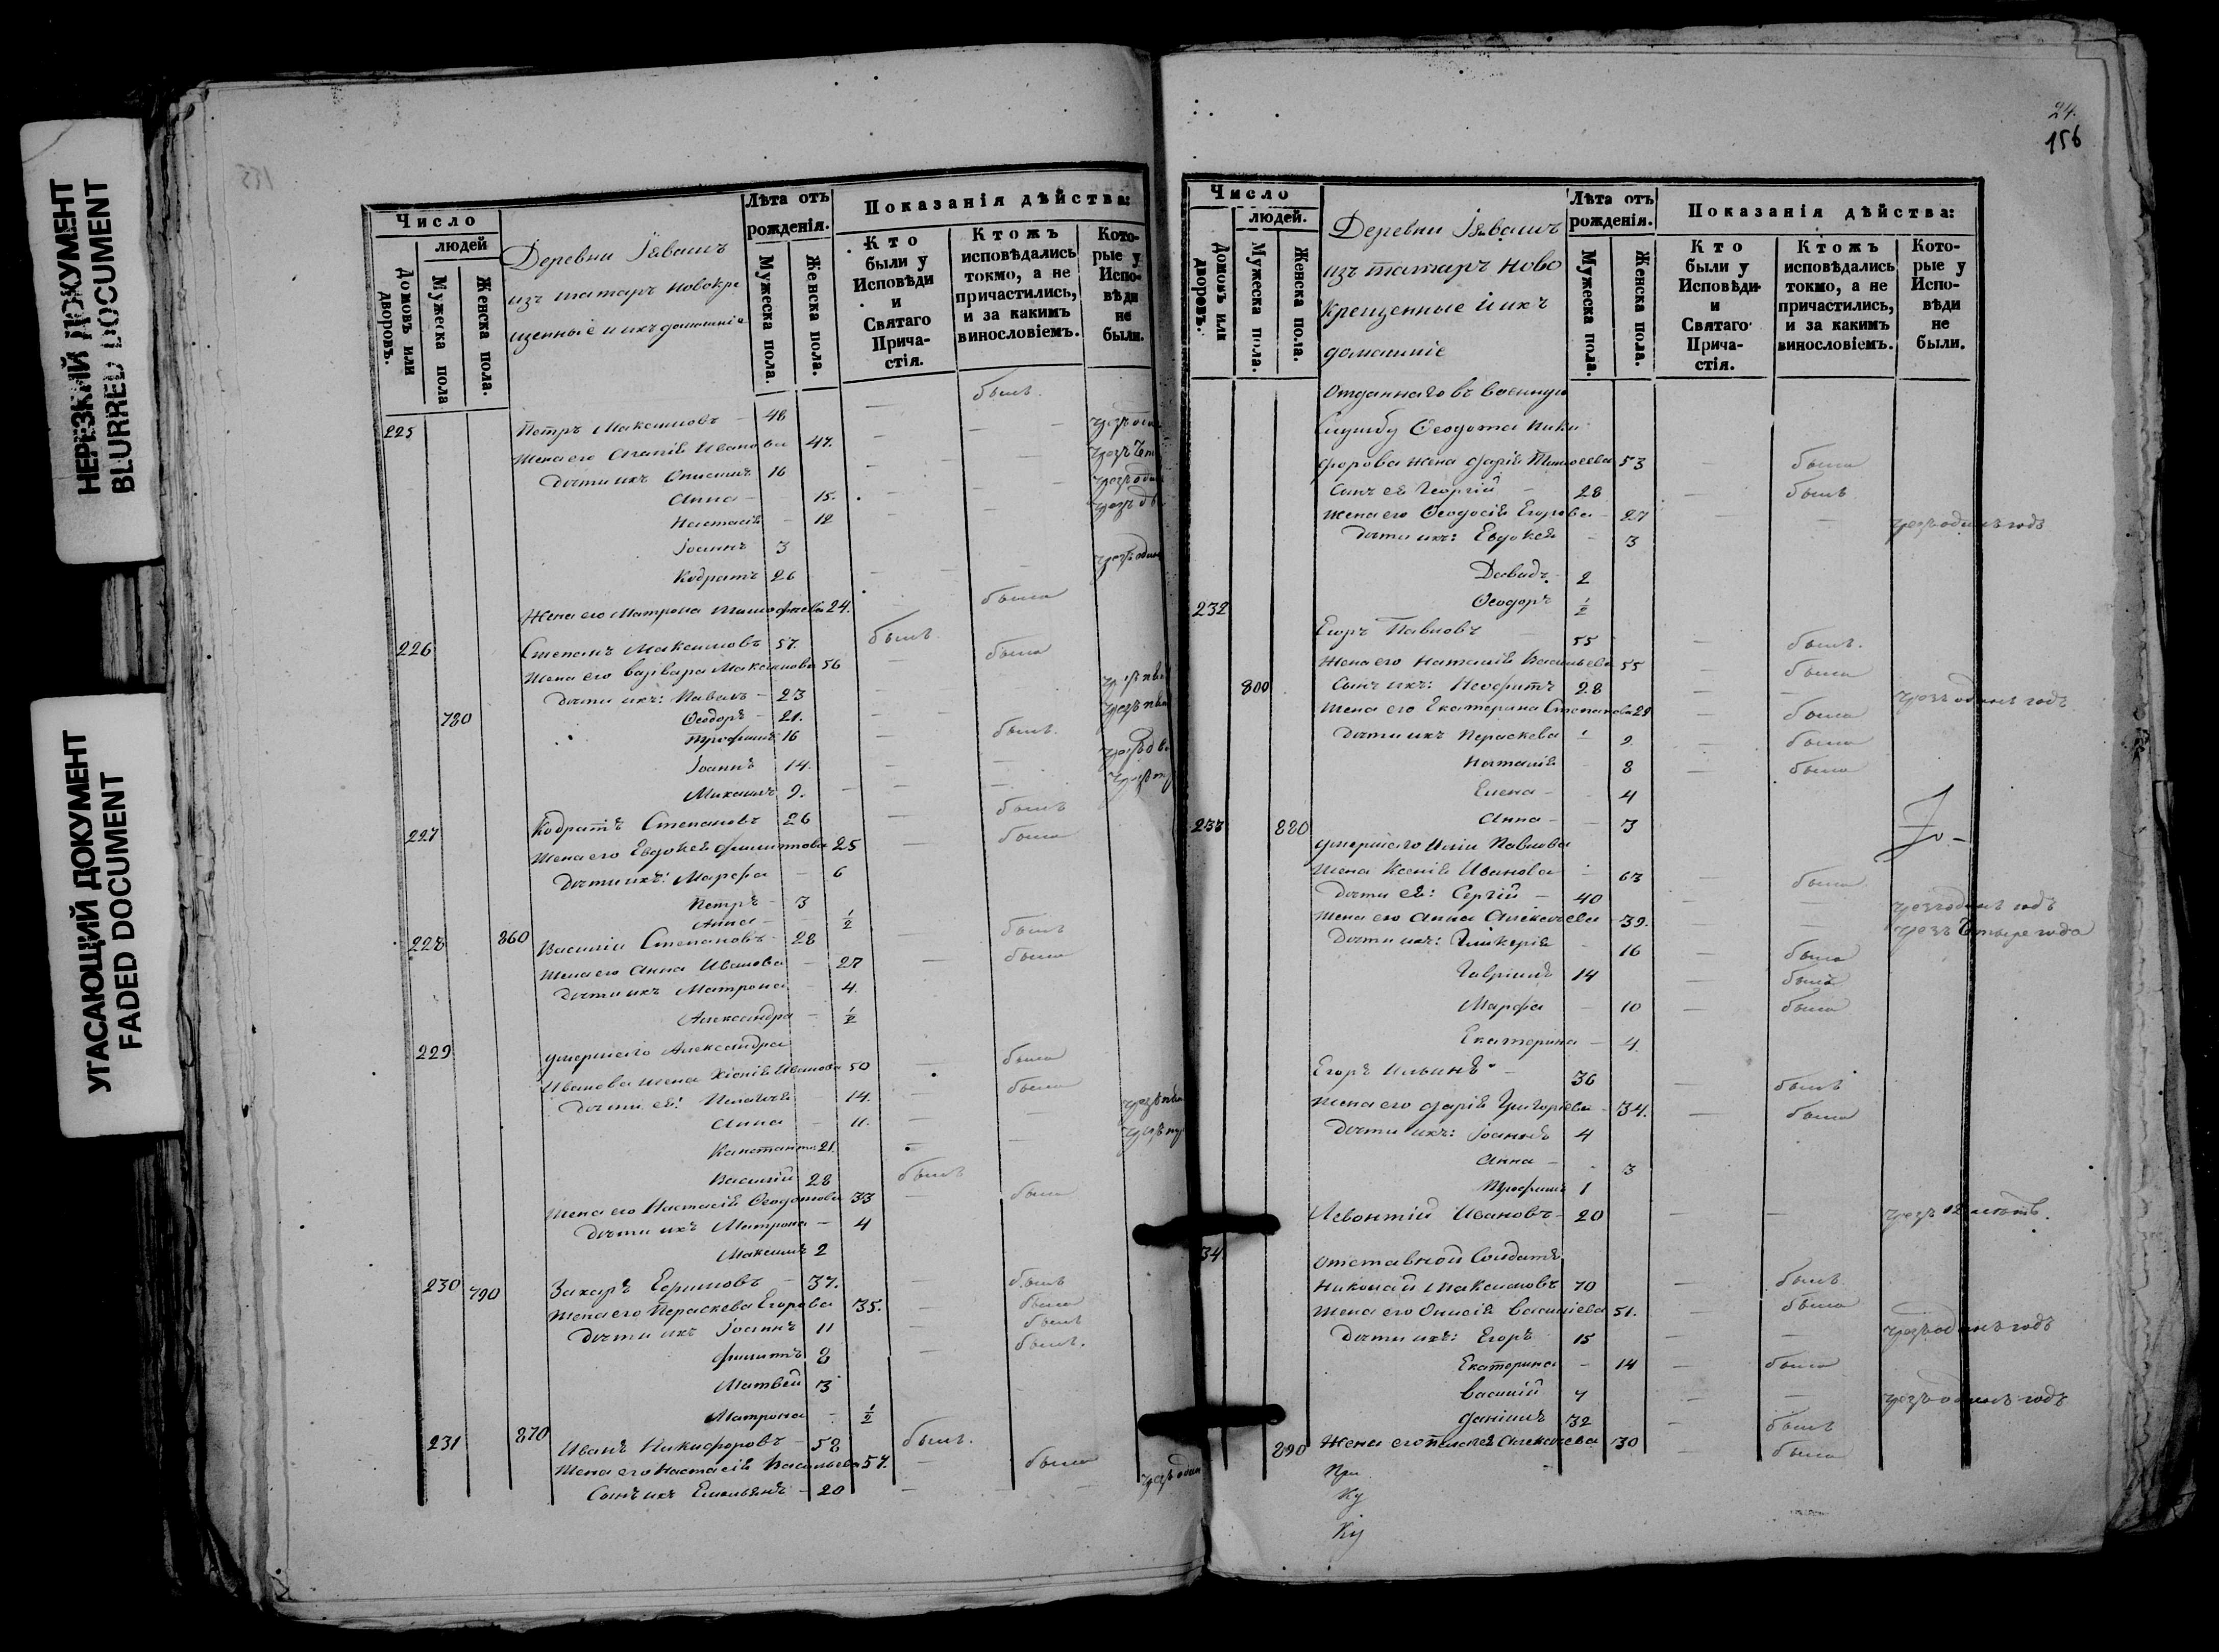 НЕРЕЗКИЙ ДОКУМЕНТ
BLURRED DOCUMENT
УГАСАЮЩИЙ ДОКУМЕНТ
FADED DOCUMENT
Число
людей
Домовъ или дворовъ.
Мужеска пола
Женска пола.
Деревни
изъ татаръ новокре
щенные и ихъ домашніе
Лѣта отъ рожденія.
Мужеска пола.
Женска пола.
Показанія дѣйства:
Кто были у Исповѣди и Святаго Прича-стія.
Ктожъ исповѣдались токмо, а не причастились, и за какимъ винословіемъ.
Кото-рые у Испо-вѣди не были.
225 Петръ Максимовъ - 48 — былъ.
Жена его Иванова 47. — —
Дѣти ихъ 16 — —
Анна - 15. — —
Настасія - 12 — —
Іоаннъ 3
Кодратъ 26 — —
Жена его Матрона Тимофѣева 24. была
226 Степанъ Максимовъ 57. былъ.
Жена его Варвара Максимова 56 — была
Дѣти ихъ: Павелъ - 23 — —
780 Ѳеодоръ - 21. — —
Трофимъ 16 — былъ.
Іоаннъ 14. — —
Михаилъ 9. — —
227 Кодратъ Степановъ 26 — былъ
Жена его Евдокія Филиппова 25 — была
Дѣти ихъ: Марфа - 6
Петръ - 3
Анна - ½
228 860 Василій Степановъ - 28 — былъ
Жена его Анна Иванова - 27 — была
Дѣти ихъ Матрона - 4.
Александра - ½
229 умершаго Александра
Иванова жена Иванова 50 — была
Дѣти ея: Пелагея 14. — была
Анна - 11. — —
Канстантинъ 21. — —
Василій 28 былъ
Жена его Настасія Ѳеодотова 33 — была
Дѣти ихъ Матрона - 4
Максимъ 2
230 790 Захаръ Ефимовъ - 37. — былъ
Жена его Параскева Егорова 35. — была
Дѣти ихъ Іоаннъ 11 — былъ
Филиппъ 8 — былъ.
Матвѣй 3
Матрона - ½
231 870 Иванъ Никифоровъ - 58 былъ.
Жена его Настасія Васильева 57. — была
Сынъ ихъ Емельянъ - 20 — —
24.
156
Число
людей.
Домовъ или дворовъ.
Мужеска пола.
Женска пола.
Деревни
изъ татаръ ново
крещенные и ихъ
домашніе
Лѣта отъ рожденія.
Мужеска пола.
Женска пола.
Показанія дѣйства:
Кто были у Исповѣди и Святаго Прича-стія.
Ктожъ исповѣдались токмо, а не причастились, и за какимъ винословіемъ.
Кото-рые у Испо-вѣди не были.
Отданнаго въ военную
службу Ѳеодота Ники
форова жена Дарія 53 — была
Сынъ ея Георгій - 28 — былъ
Жена его Ѳеодосія Егорова - 27 — — чрезъ одинъ годъ
Дѣти ихъ: Евдокея - 3
Давидъ 2
Ѳеодоръ ½
232 Егоръ Павловъ 55 — былъ.
Жена его Наталія Васильева 55 — была
800 Сынъ ихъ: 28 — — чрезъ одинъ годъ
Жена его Екатерина Степанова 29 — была
Дѣти ихъ Параскева - 9 — была
Наталія - 8 — была
Елена - 4
880 Анна - 3
233 умершаго Иліи Павлова
Жена Ксенія Иванова - 63 — была
Дѣти ея: Сергій - 40 — — чрезъ одинъ годъ
Жена его Анна Алексѣева - 39. — — чрезъ четыре года
Дѣти ихъ: Гликерія - 16 — была
Гавріилъ 14 — былъ
Марфа - 10 — была
Екатерина - 4.
Егоръ Ильинъ - 36 — былъ
Жена его Дарія Григорьева - 34. — была
Дѣти ихъ: Іоаннъ 4
Анна - 3
Трофимъ 1
Левонтій Ивановъ - 20 — — чрезъ 12 лѣтъ.
34 Отставной Солдатъ
Николай Максимовъ 70 — былъ.
Жена его Васильева 51. — была
Дѣти ихъ: Егоръ 15 — — чрезъ одинъ годъ
Екатерина - 14 — была
Василій 7 — — чрезъ одинъ годъ
Даніилъ 32 — былъ
890 Жена его Пелагея Алексѣева 30 — была
При
Ку
Ку